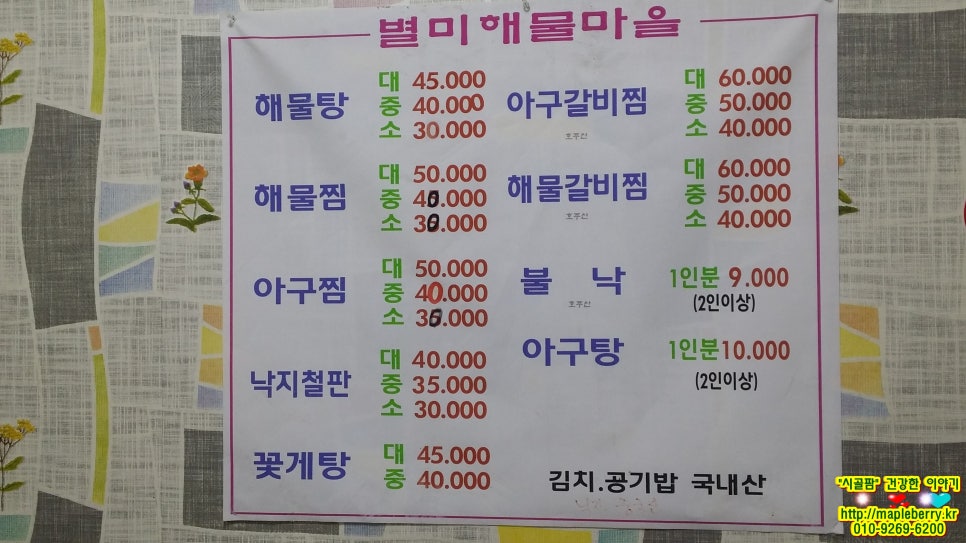 별미해물마을
해물탕
대 45.000
중 40.000
소 30.000
해물찜
대 50.000
중 40.000
소 30.000
아구찜
대 50.000
중 40.000
소 35.000
낙지철판
대 40.000
중 35.000
소 30.000
꽃게탕
대 45.000
중 40.000
아구갈비찜
호주산
대 60.000
중 50.000
소 40.000
해물갈비찜
호주산
대 60.000
중 50.000
소 40.000
불 낙
호주산
1인분 9.000
(2인이상)
아구탕
1인분 10.000
(2인이상)
김치.공기밥 국내산
"시골팜" 건강한 이야기
http://mapleberry.kr
010-9269-6200